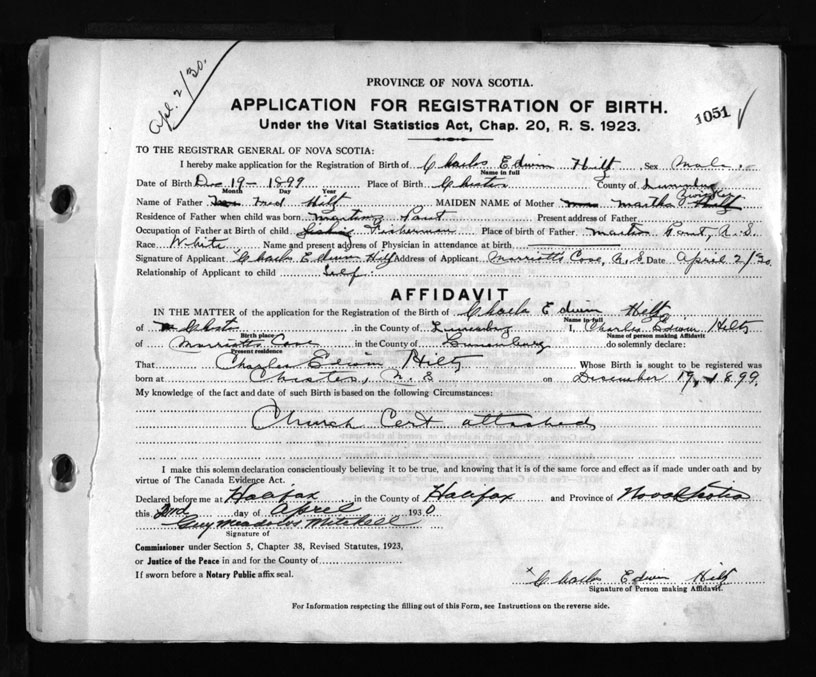 Apl. 2/30.
PROVINCE OF NOVA SCOTIA.
APPLICATION FOR REGISTRATION OF BIRTH.
1051 ✓
Under the Vital Statistics Act, Chap. 20, R. S. 1923.
TO THE REGISTRAR GENERAL OF NOVA SCOTIA:
I hereby make application for the Registration of Birth of Charles Edwin Hiltz Sex Male
Name in full
Date of Birth Dec 19 - 1899 Place of Birth Chester County of Lunenburg
Month Day Year
Name of Father Fred Hiltz MAIDEN NAME of Mother Martha
Residence of Father when child was born Martins Point Present address of Father
Occupation of Father at Birth of child Fisherman Place of birth of Father Martins Point, N.S.
Race White Name and present address of Physician in attendance at birth
Signature of Applicant Charles Edwin Hiltz Address of Applicant Marriotts Cove, N.S. Date April 2/30
Relationship of Applicant to child Self.
AFFIDAVIT
IN THE MATTER of the application for the Registration of the Birth of Charles Edwin Hiltz
Name in full
of Chester, in the County of Lunenburg I, Charles Edwin Hiltz
Birth place Name of person making Affidavit
of Marriotts Cove in the County of Lunenburg do solemnly declare:
Present residence
That Charles Edwin Hiltz Whose Birth is sought to be registered was
born at Chester, N.S on December 19, 1899.
My knowledge of the fact and date of such Birth is based on the following Circumstances:
Church Cert attached
I make this solemn declaration conscientiously believing it to be true, and knowing that it is of the same force and effect as if made under oath and by
virtue of The Canada Evidence Act.
Declared before me at Halifax in the County of Halifax and Province of Nova Scotia
this 2nd day of April 1930
Guy Meadows Mitchell
Signature of
Commissioner under Section 5, Chapter 38, Revised Statutes, 1923,
or Justice of the Peace in and for the County of
If sworn before a Notary Public affix seal.
x Charles Edwin Hiltz
Signature of Person making Affidavit.
For Information respecting the filling out of this Form, see Instructions on the reverse side.